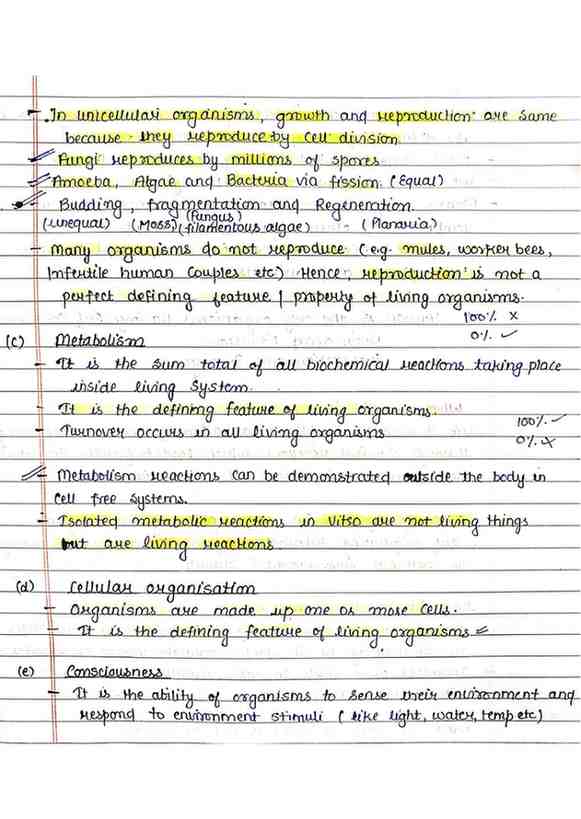 - In unicellular organisms, growth and reproduction are same
because they reproduce by cell division
- Fungi reproduces by millions of spores
- Amoeba, Algae and Bacteria via fission. (Equal)
- Budding, fragmentation and Regeneration.
(unequal) (Moss) (fungus) (filamentous algae) - (Planaria)
- Many organisms do not reproduce (e.g. mules, worker bees,
Infertile human couples etc) Hence, reproduction is not a
perfect defining feature / property of living organisms.
100% ×
0% ✓
(c) Metabolism
- It is the sum total of all biochemical reactions taking place
inside living system.
- It is the defining feature of living organisms.
100% ✓
- Turnover occurs in all living organisms
0% ×
- Metabolism reactions can be demonstrated outside the body in
cell free systems.
- Isolated metabolic reactions in vitro are not living things
but are living reactions.
(d) Cellular organisation
- Organisms are made up one or more cells.
- It is the defining feature of living organisms =
(e) Consciousness
- It is the ability of organisms to sense their environment and
respond to environment stimuli (like light, water, temp etc)